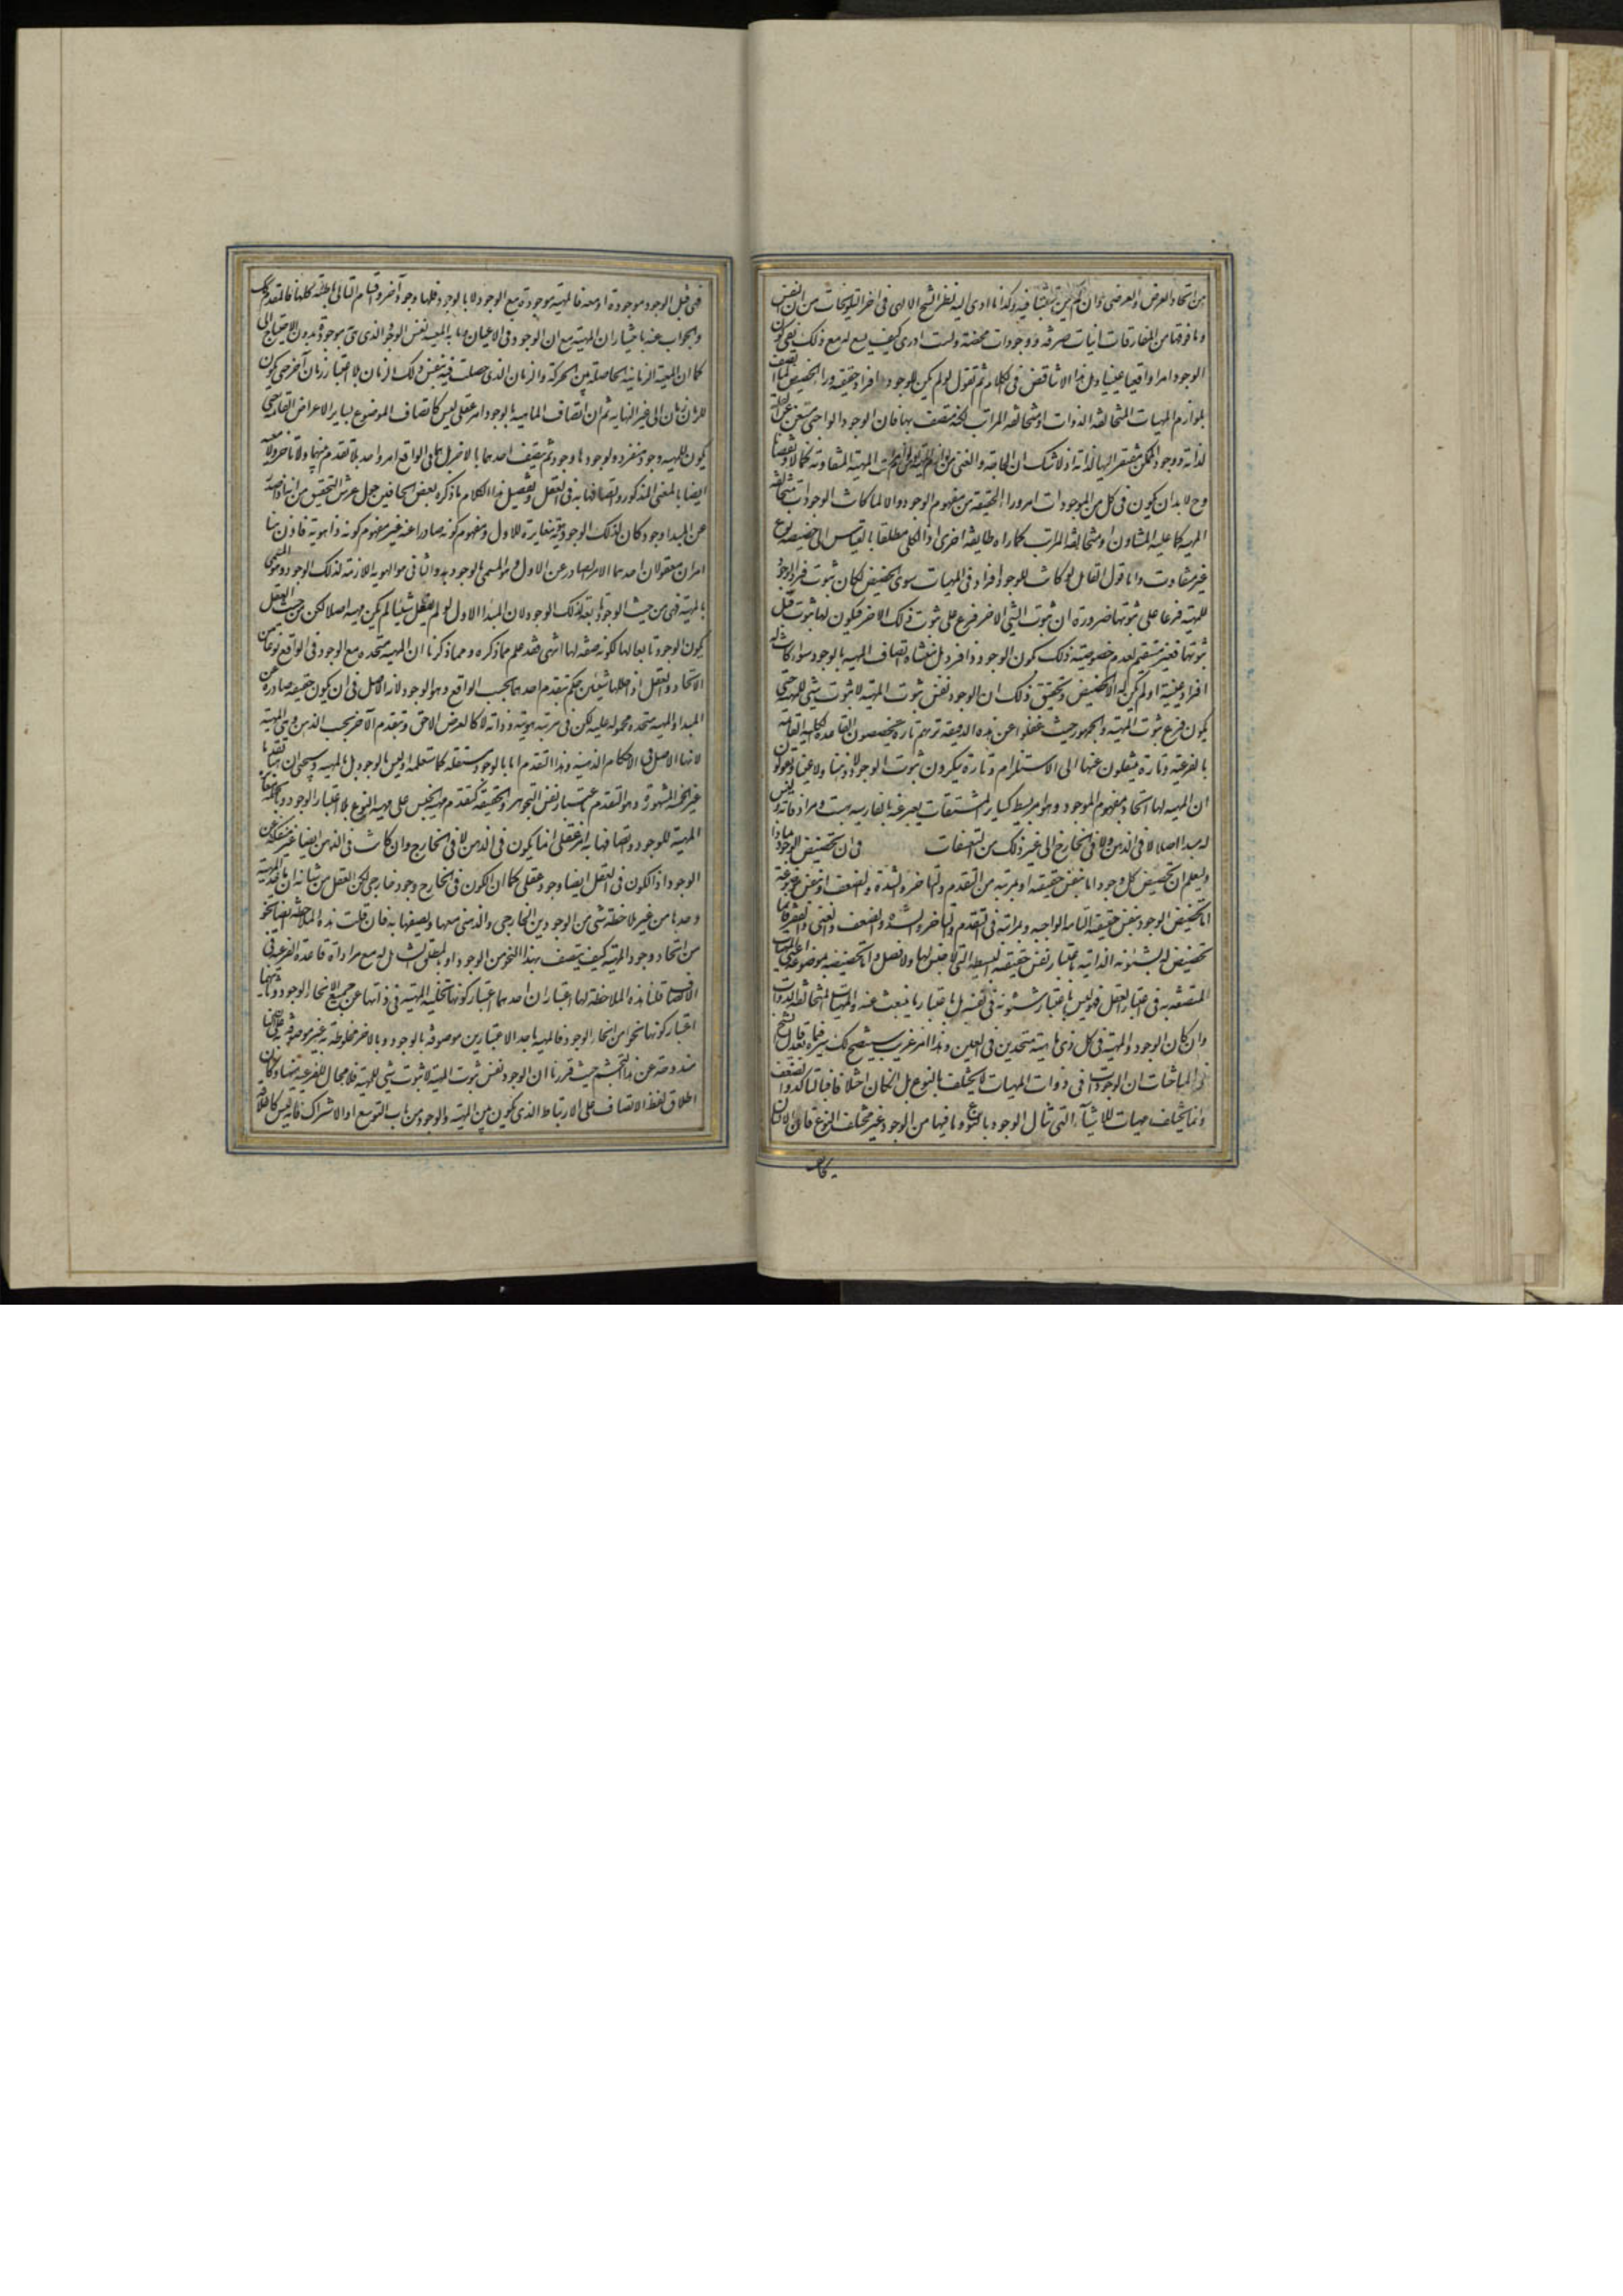 من اتحاد العرض والعرضي وان لم يكن متشبثا فيه وكذا ما ادى اليه نظر الشيخ الالهي في اخر التلويحات من ان النفس
وما فوقها من المفارقات انيات صرفة ووجودات محضة ولست ادري كيف يسع له مع ذلك نفي كون
الوجود امرا واقعيا عينيا وهل هذا الا تناقض في الكلام ثم نقول لو لم يكن للوجود افراد حقيقية وراء الحصص لما اتصف
بلوازم المهيات المتخالفة الذوات او متخالفة المراتب لكنه متصف بها فان الوجود الواجبي مستغن عن العلة
لذاته ووجود الممكن مفتقر اليها لذاته اذ لا شك ان الحاجة والغنى من لوازم المهية او من لوازم مراتب المهية المتفاوتة كمالا ونقصانا
وح لابد ان يكون في كل من الموجودات امر وراء الحصة من مفهوم الوجود والا لما كانت الوجودات متخالفة
المهية كما عليه المشاؤن او متخالفة المراتب كما راه طايفة اخرى اذ الكلي مطلقا بالقياس الى حصصه نوع
غير متفاوت واما قول القائل لو كانت للوجود افراد في المهيات سوى الحصص لكان ثبوت فرد الوجود
للمهية فرعا على ثبوتها ضرورة ان ثبوت الشي الاخر فرع على ثبوت ذلك الاخر فيكون لها ثبوت قبل
ثبوتها فغير مستقيم لعدم خصوصية ذلك بكون الوجود ذا فرد بل منشاه اتصاف المهية بالوجود سواء كانت له
افراد عينية او لم يكن له الا الحصص وتحقيق ذلك ان الوجود نفس ثبوت المهية لا ثبوت شي للمهية حتى
يكون فرع ثبوت المهية والجمهور حيث غفلوا عن هذه الدقيقة تراهم تارة يخصصون القاعدة الكلية القائلة
بالفرعية وتارة ينتقلون عنها الى الاستلزام وتارة ينكرون ثبوت الوجود لا ذهنا ولا عينا ويقولون
ان المهية لها اتحاد بمفهوم الموجود وهو امر بسيط كساير المشتقات يعبر عنه بالفارسية بهست ومرادفاته وليس
له مبدا اصلا لا في الذهن ولا في الخارج الى غير ذلك من التعسفات في ان تخصيص الوجود بماذا
وليعلم ان تخصيص كل وجود اما بنفس حقيقته او بمرتبة من التقدم والتاخر والشدة والضعف او بنفس موضوعه
اما تخصيص الوجود بنفس حقيقته التامة الواجبية وبمراتبه في التقدم والتاخر والشدة والضعف والغنى والفقر فانما
تخصيص له بشئونه الذاتية باعتبار نفس حقيقته البسيطة التي لا جنس لها ولا فصل واما تخصيصه بموضوعه اعني المهيات
المتصفة به في اعتبار العقل فهو ليس باعتبار شئونه في نفسه بل باعتبار ما ينبعث عنه من المهيات المتخالفة الذوات
وان كان الوجود والمهية في كل ذي ماهية متحدين في العين وهذا امر غريب سيتضح لك سره فيما بعد قال الشيخ
في المباحثات ان الوجود في ذوات المهيات لا يختلف بالنوع بل ان كان اختلاف فبالتاكد والضعف
وانما يختلف مهيات الاشياء التي تنال الوجود بالنوع وما فيها من الوجود غير مختلف النوع فان الانسان
يخالف
فهي قبل الوجود موجودة او معه فالمهية موجودة مع الوجود لا بالوجود فلها وجود آخر واقسام التالي باطلة كلها فالمقدم كذلك
والجواب عنه باختيار ان المهية مع ان الوجود في الاعيان وما به المعية نفس الوجود الذي هي موجودة به بدون الاحتياج الى
كما ان المعية الزمانية الحاصلة بين الحركة والزمان الذي حصلت فيه بنفس ذلك الزمان بلا اعتبار زمان آخر حتى يكون
للزمان زمان الى غير النهاية ثم ان اتصاف الماهية بالوجود امر عقلي ليس كاتصاف الموضوع بساير الاعراض القائمة حتى
يكون للمهية وجود منفرد ولوجودها وجود ثم يتصف احدهما بالاخر بل هما في الواقع امر واحد بلا تقدم بينهما ولا تاخر ولا معية
ايضا بالمعنى المذكور واتصافها به في العقل وتفصيل هذا الكلام ما ذكره بعض الحافين حول عرش التحقيق من انه اذا صدر
عن المبدا وجود كان لذلك الوجود هوية مغايرة للاول ومفهوم كونه صادرا عنه غير مفهوم كونه ذا هوية فاذن هنا
امران معقولان احدهما الامر الصادر عن الاول وهو المسمى بالوجود والثاني هو الهوية اللازمة لذلك الوجود وهو المسمى
بالمهية فهي من حيث الوجود تابعة لذلك الوجود لان المبدا الاول لو لم يفعل شيئا لم يكن مهية اصلا لكن من حيث العقل
يكون الوجود تابعا لها لكونه صفة لها انتهى فقد علم مما ذكره ومما ذكرنا ان المهية متحدة مع الوجود في الواقع نوعا من
الاتحاد والعقل اذا حللهما شيئين حكم بتقدم احدهما بحسب الواقع وهو الوجود لانه الاصل في ان يكون حقيقة صادرة عن
المبدا والمهية متحدة محمولة عليه لكن في مرتبة هوية ذاته لا كالعرض اللاحق وبتقدم الآخر بحسب الذهن وهي المهية
لانها الاصل في الاحكام الذهنية وهذا التقدم اما بالوجود مستقلة كما ستعلمه او ليس بالوجود بل بالمهية وسيجئ ان هنا تقدما
غير الخمسة المشهورة وهو التقدم باعتبار نفس التجوهر والحقيقة كتقدم مهية الجنس على مهية النوع بلا اعتبار الوجود وبالجملة مغايرة
المهية للوجود واتصافها به امر عقلي انما يكون في الذهن لا في الخارج وان كانت في الذهن ايضا غير منفكة عن
الوجود اذ الكون في العقل ايضا وجود عقلي كما ان الكون في الخارج وجود خارجي لكن العقل من شانه ان ياخذ المهية
وحدها من غير ملاحظة شي من الوجودين الخارجي والذهني معها ويصفها به فان قلت هذه الملاحظة ايضا نحو
من انحاء وجود المهية فكيف يتصف بهذا النحو من الوجود او بالمطلق الشامل له مع مراعاة قاعدة الفرعية في
الاتصاف قلنا هذه الملاحظة لها اعتباران احدهما اعتبار كونها تخلية المهية في ذاتها عن جميع انحاء الوجود وثانيهما
اعتبار كونها نحوا من انحاء الوجود فالمهية باحد الاعتبارين موصوفة بالوجود وبالاخر مخلوطة به غير موصوفة به على ان لنا
مندوحة عن هذا التجشم حيث قررنا ان الوجود نفس ثبوت المهية لا ثبوت شي للمهية فلا مجال للفرعية هنا وكان
اطلاق لفظ الاتصاف على الارتباط الذي يكون بين المهية والوجود من باب التوسع او الاشتراك فانه ليس كاطلاقه